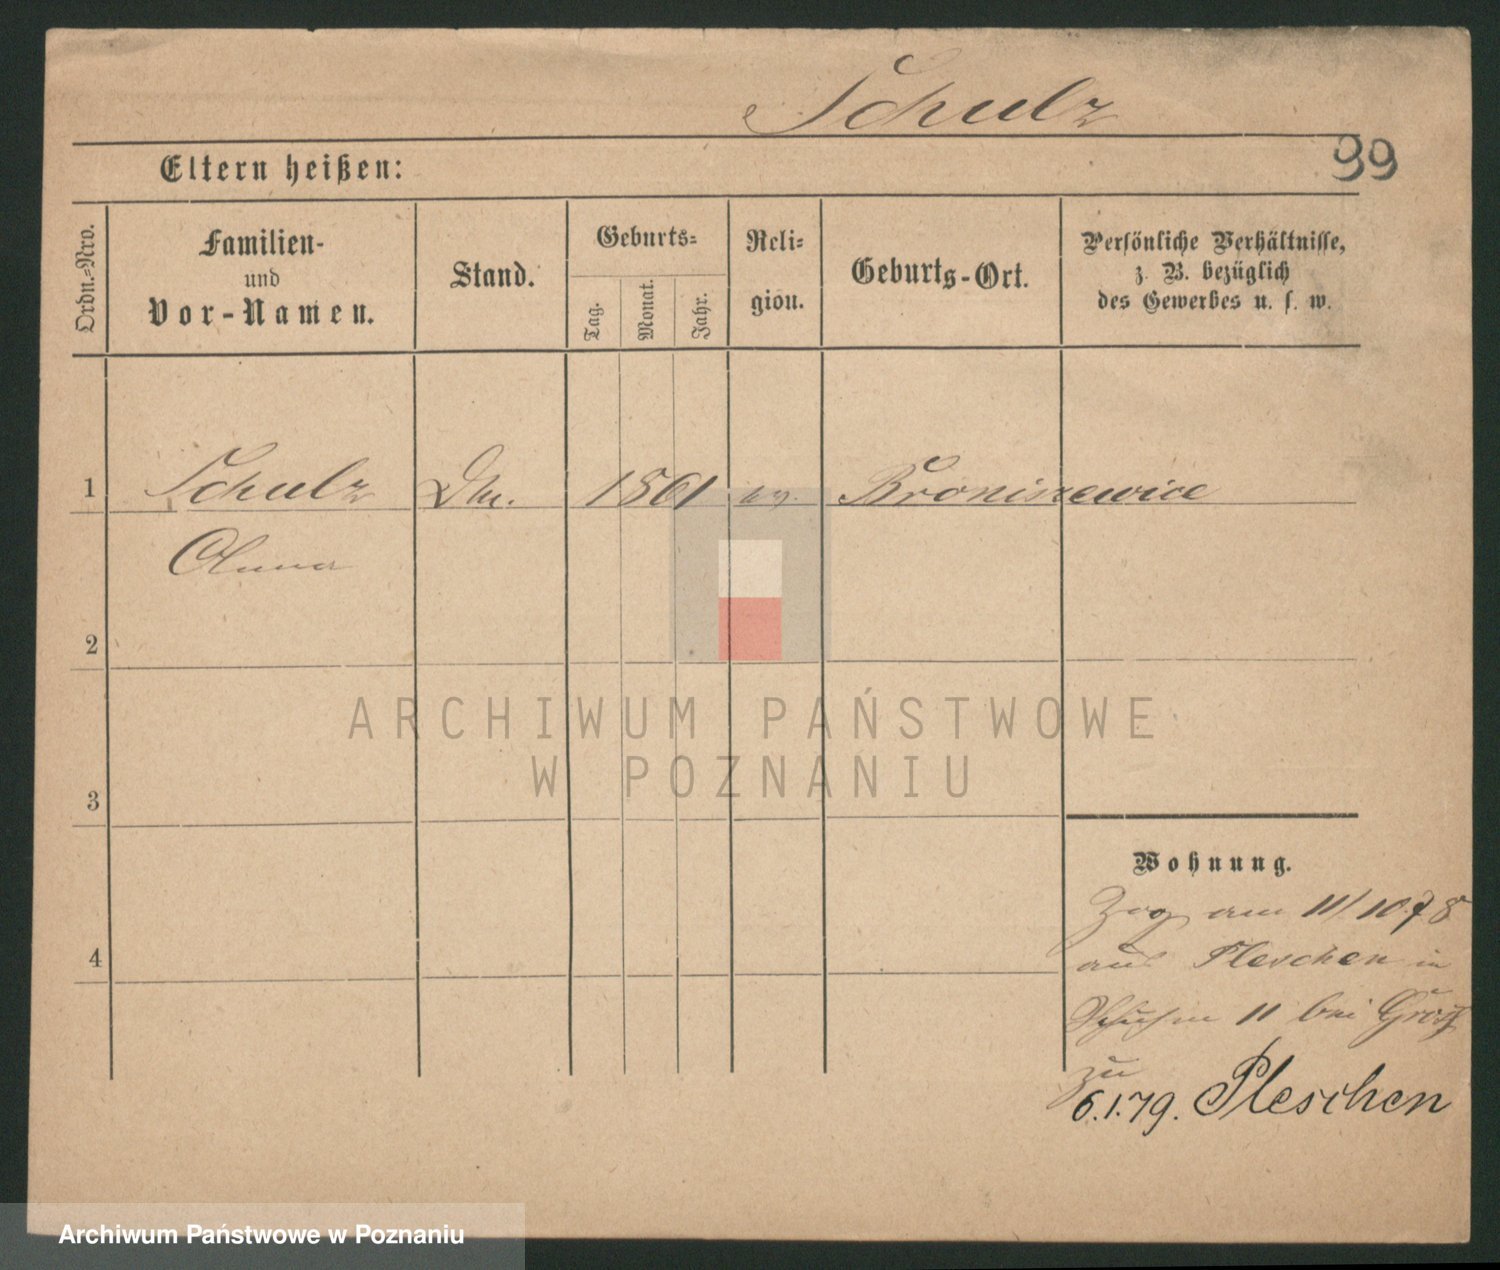 Schulz
Eltern heißen:
99
Ordn.=Nro.
Familien-
und
Vor-Namen.
Stand.
Geburts=
Tag.
Monat.
Jahr.
Reli=
gion.
Geburts-Ort.
Persönliche Verhältnisse,
z. B. bezüglich
des Gewerbes u. s. w.
1 Schulz 1861 Broniszewice
Anna
2
3
4
ARCHIWUM PAŃSTWOWE
W POZNANIU
Wohnung.
Zog am 11/10 78
aus Pleschen in
11 bei Groß
zu
6.1.79. Pleschen
Archiwum Państwowe w Poznaniu